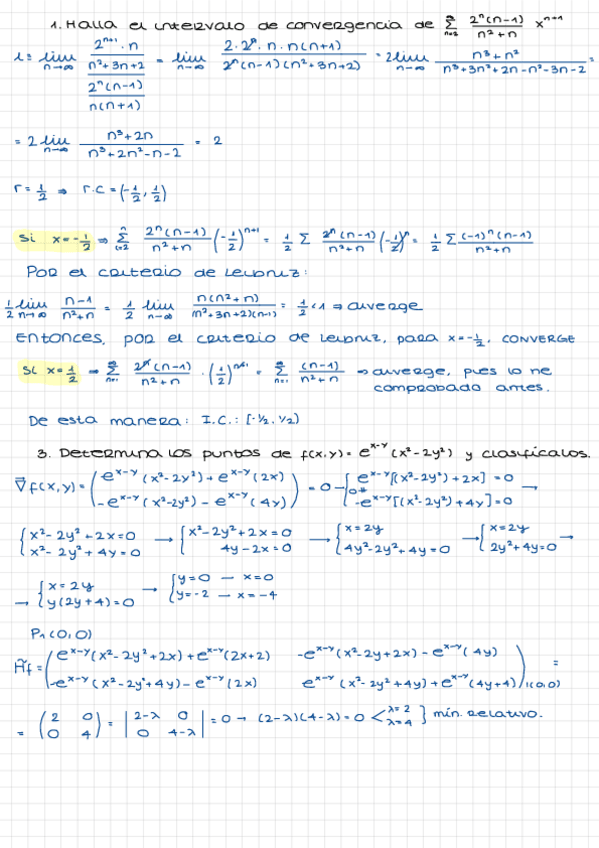 1. Halla el intervalo de convergencia de ∞Σn=2 2ⁿ(n-1)/n²+n xⁿ⁺¹
l = lim n→∞ (2ⁿ⁺¹·n/n²+3n+2)/(2ⁿ(n-1)/n(n+1)) = lim n→∞ 2·2ⁿ·n·n(n+1)/2ⁿ(n-1)(n²+3n+2) = 2 lim n→∞ n³+n²/n³+3n²+2n-n²-3n-2 =
= 2 lim n→∞ n³+2n/n³+2n²-n-2 = 2
r = 1/2 ⇒ r.c = (-1/2, 1/2)
Si x=-1/2 ⇒ Σ 2ⁿ(n-1)/n²+n (-1/2)ⁿ⁺¹ = 1/2 Σ 2ⁿ(n-1)/n²+n (-1/2)ⁿ = 1/2 Σ (-1)ⁿ(n-1)/n²+n
Por el criterio de Leibniz:
1/2 lim n→∞ n-1/n²+n = 1/2 lim n→∞ n(n²+n)/(n²+3n+2)(n-1) = 1/2 <1 ⇒ diverge
Entonces, por el criterio de Leibniz, para x=-1/2, CONVERGE
Si x=1/2 ⇒ ∞Σn=1 2ⁿ(n-1)/n²+n · (1/2)ⁿ⁺¹ = ∞Σn=1 (n-1)/n²+n ⇒ diverge, pues lo he
comprobado antes.
De esta manera: I.C.: [-1/2, 1/2)
3. Determina los puntos de f(x,y) = eˣ⁻ʸ(x²-2y²) y clasifícalos.
∇f(x,y) = (eˣ⁻ʸ(x²-2y²)+eˣ⁻ʸ(2x) / -eˣ⁻ʸ(x²-2y²)-eˣ⁻ʸ(4y)) = 0 → { eˣ⁻ʸ[(x²-2y²)+2x]=0 / -eˣ⁻ʸ[(x²-2y²)+4y]=0 →
{ x²-2y²+2x=0 / x²-2y²+4y=0 → { x²-2y²+2x=0 / 4y-2x=0 → { x=2y / 4y²-2y²+4y=0 → { x=2y / 2y²+4y=0 →
→ { x=2y / y(2y+4)=0 → { y=0 — x=0 / y=-2 — x=-4
P₁(0,0)
Hf = (eˣ⁻ʸ(x²-2y²+2x)+eˣ⁻ʸ(2x+2) -eˣ⁻ʸ(x²-2y+2x)-eˣ⁻ʸ(4y)
-eˣ⁻ʸ(x²-2y²+4y)-eˣ⁻ʸ(2x) eˣ⁻ʸ(x²-2y²+4y)+eˣ⁻ʸ(4y+4))₁(0,0) =
= (2 0 / 0 4) = |2-λ 0 / 0 4-λ| = 0 → (2-λ)(4-λ)=0 < λ=2 / λ=4 } mín. relativo.